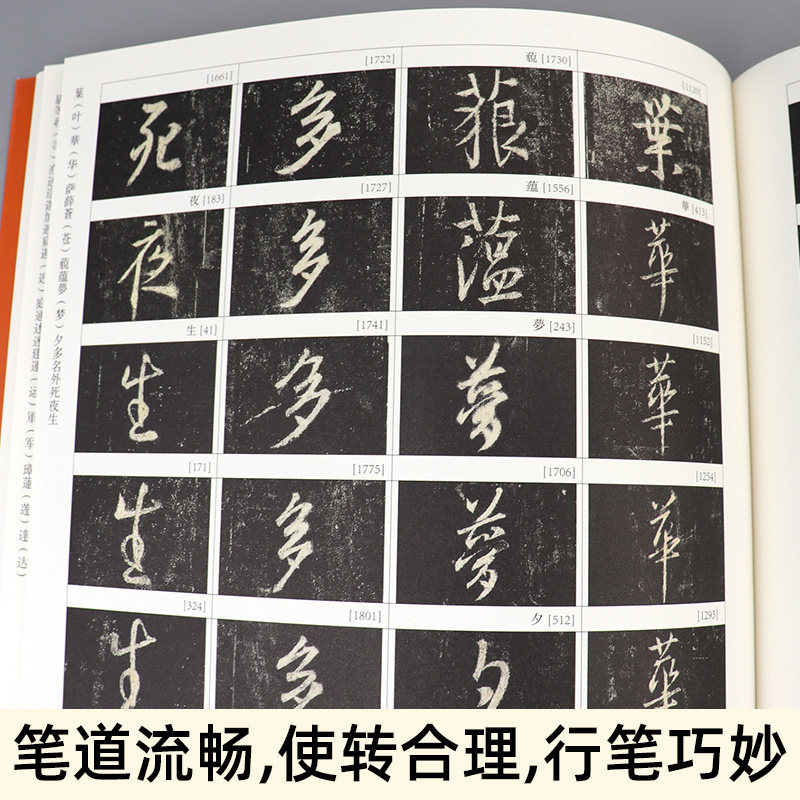 [1661] [1722] 藐 [1730] [1120]
死 多 藐 葉
夜 [183] [1727] 蕴 [1556] 華 [413]
夜 多 蕴 華
生 [41] [1741] 夢 [243] [1152]
生 多 夢 華
[171] [1775] [1706] [1254]
生 多 夢 華
[324] [1801] 夕 [512] [1293]
生 多 夕 華
葉（叶）華（华）萨薛蒼（苍）藐蕴夢（梦）夕多名外死夜生
（运）軍（军）璋蓮（莲）達（达）
笔道流畅,使转合理,行笔巧妙